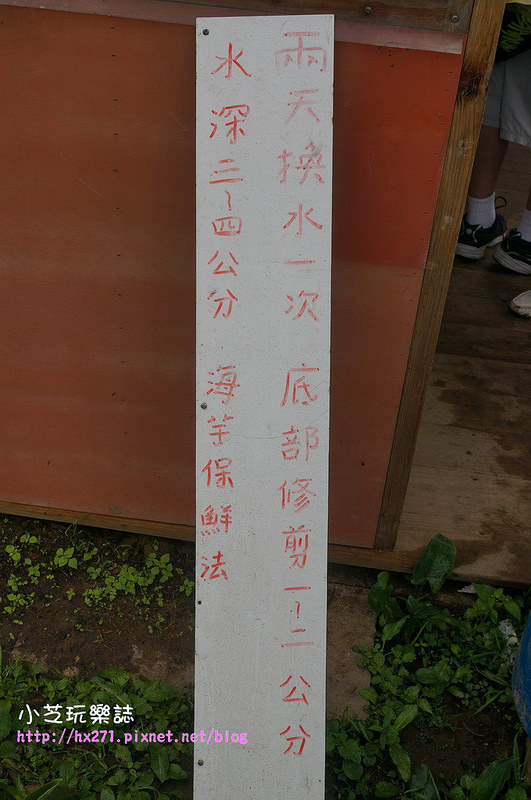 雨天換水一次 底部修剪一~二公分
水深三~四公分 海芋保鮮法
小芝玩樂誌
http://hx271.pixnet.net/blog